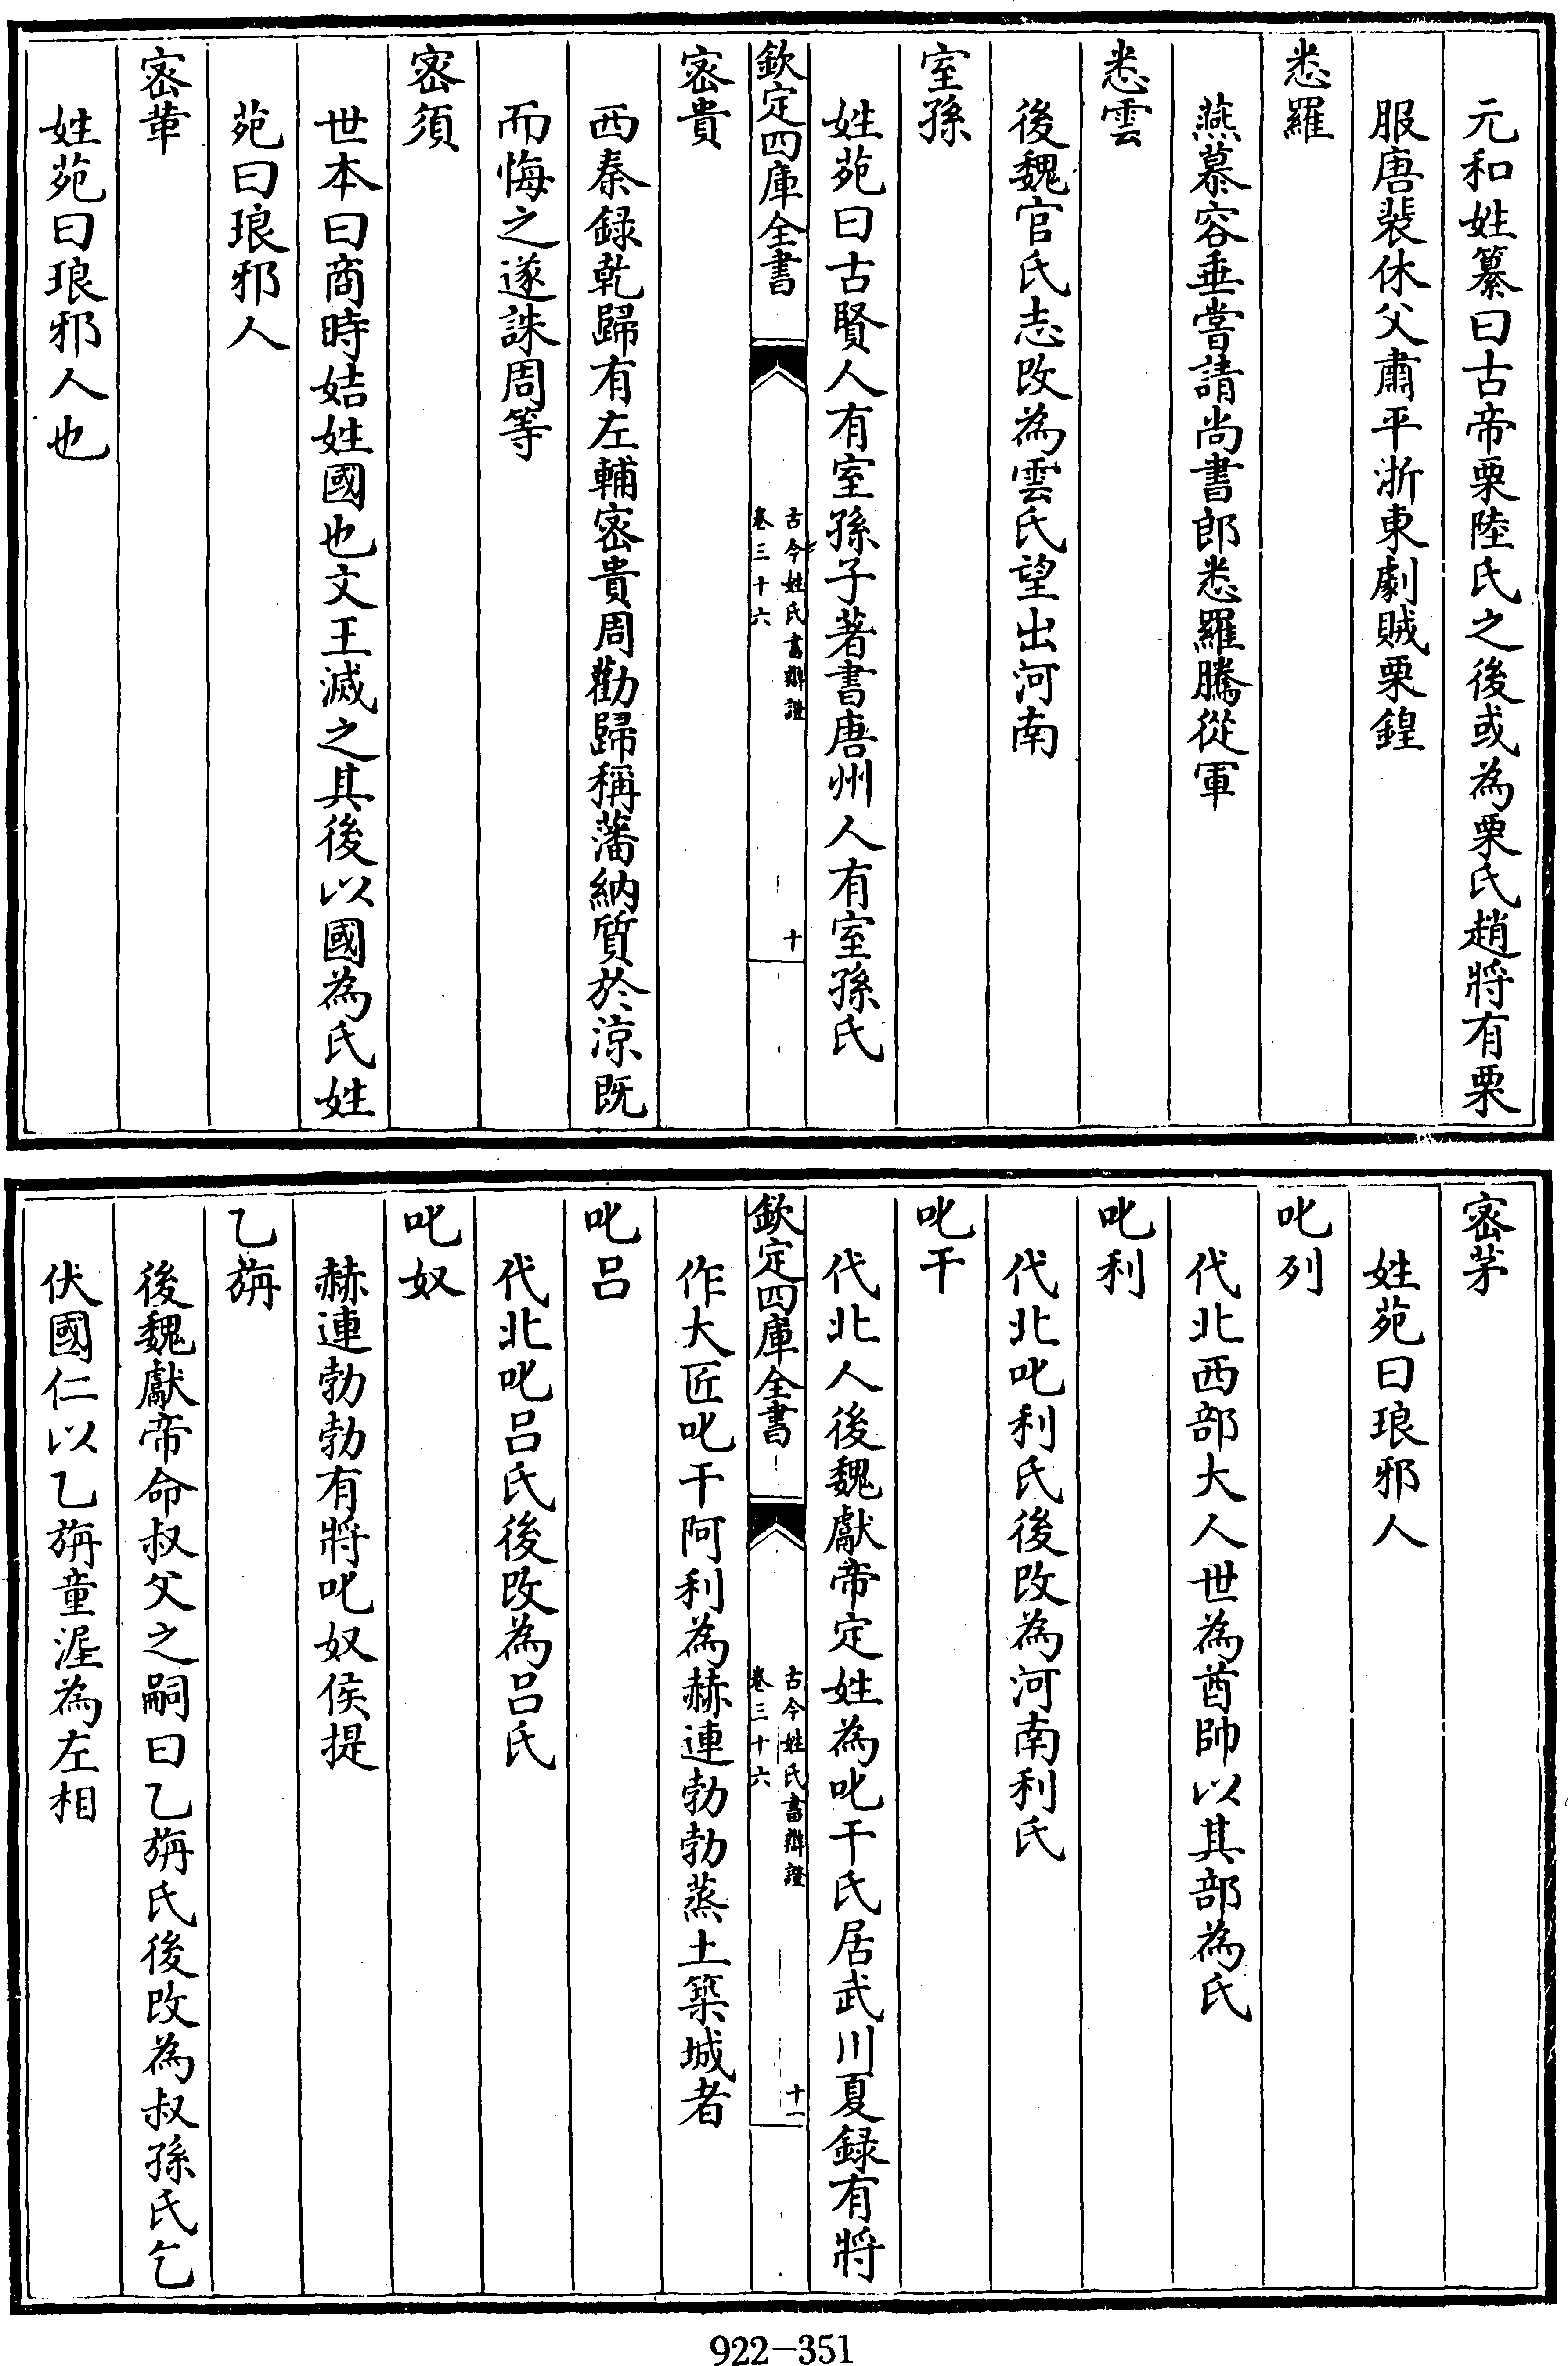 元和姓纂曰古帝栗陸氏之後或為栗氏趙將有栗
服唐裴休父肅平浙東劇賊栗鍠
悉羅
燕慕容垂嘗請尚書郎悉羅騰從軍
悉雲
後魏官氏志改為雲氏望出河南
室孫
姓苑曰古賢人有室孫子著書唐州人有室孫氏
欽定四庫全書
古今姓氏書辯證
卷三十六
十
密貴
西秦録乾歸有左輔密貴周勸歸稱藩納質於涼既
而悔之遂誅周等
密須
世本曰商時姞姓國也文王滅之其後以國為氏姓
苑曰琅邪人
密革
姓苑曰琅邪人也
密茅
姓苑曰琅邪人
叱列
代北西部大人世為酋帥以其部為氏
叱利
代北叱利氏後改為河南利氏
叱干
代北人後魏獻帝定姓為叱干氏居武川夏録有將
欽定四庫全書
古今姓氏書辯證
卷三十六
十一
作大匠叱干阿利為赫連勃勃蒸土築城者
叱呂
代北叱呂氏後改為呂氏
叱奴
赫連勃勃有將叱奴侯提
乙旃
後魏獻帝命叔父之嗣曰乙旃氏後改為叔孫氏乞
伏國仁以乙旃童渥為左相
922-351